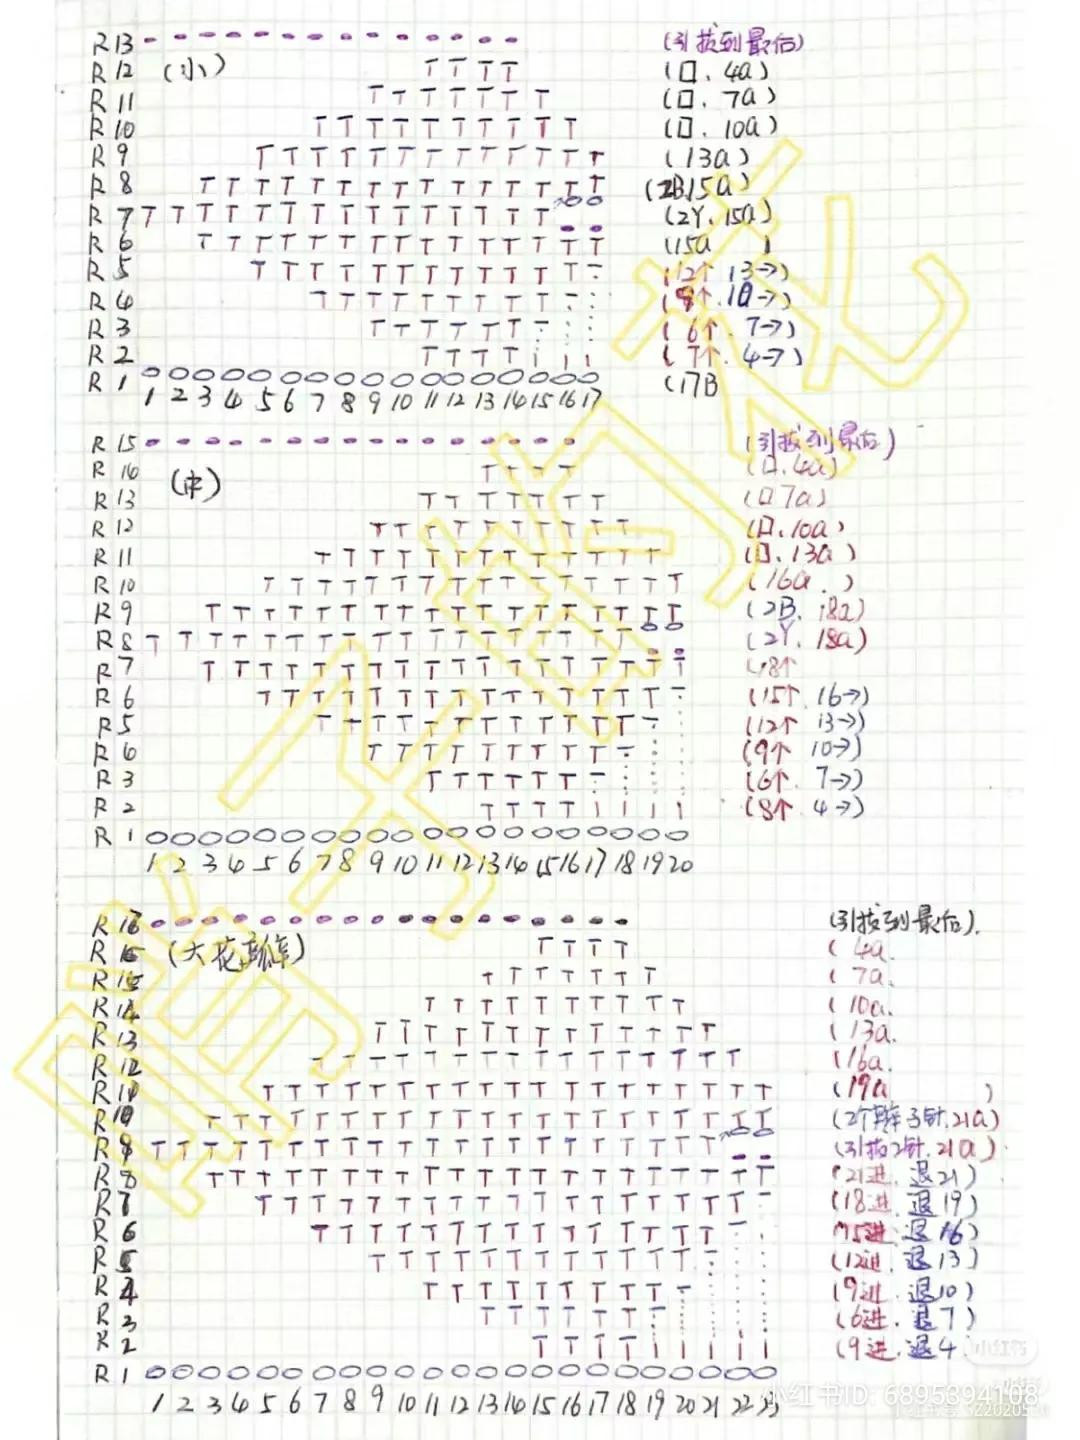 R 13 (引拔到最后)
R 12 (小) T T T T (口、4a)
R 11 T T T T T T T (口、7a)
R 10 T T T T T T T T T T (口、10a)
R 9 T T T T T T T T T T T T T (13a)
R 8 T T T T T T T T T T T T T T T (2B,15a)
R 7 T T T T T T T T T T T T T T T (2Y、15a)
R 6 T T T T T T T T T T T T T T T (15a )
R 5 T T T T T T T T T T T T (12个 13→)
R 4 T T T T T T T T T (9个.10→)
R 3 T T T T T T (6个.7→)
R 2 T T T T (7个.4→)
R 1 (17B
1 2 3 4 5 6 7 8 9 10 11 12 13 14 15 16 17
R 15 (引拔到最后)
R 14 T T T T (口.4a)
R 13 (中) T T T T T T T (口7a)
R 12 T T T T T T T T T T (口、10a)
R 11 T T T T T T T T T T T T T (口、13a)
R 10 T T T T T T T T T T T T T T T T (16a.)
R 9 T T T T T T T T T T T T T T T T T T (2B、18a)
R 8 T T T T T T T T T T T T T T T T T T (2Y、18a)
R 7 T T T T T T T T T T T T T T T T T T (18个
R 6 T T T T T T T T T T T T T T T (15个.16→)
R 5 T T T T T T T T T T T T (12个 13→)
R 4 T T T T T T T T T (9个 10→)
R 3 T T T T T T (6个.7→)
R 2 T T T T (8个.4→)
R 1
1 2 3 4 5 6 7 8 9 10 11 12 13 14 15 16 17 18 19 20
R 16 (引拔到最后).
R 15 (大花瓣) T T T T (4a.
R 15 T T T T T T T (7a.
R 14 T T T T T T T T T T (10a.
R 13 T T T T T T T T T T T T T (13a.
R 12 T T T T T T T T T T T T T T T T (16a.
R 11 T T T T T T T T T T T T T T T T T T T (19a )
R 10 T T T T T T T T T T T T T T T T T T T T T (2个辫子针.21a)
R 9 T T T T T T T T T T T T T T T T T T T T T (引拔2针.21a)
R 8 T T T T T T T T T T T T T T T T T T T T T (21进.退21)
R 7 T T T T T T T T T T T T T T T T T T (18进.退19)
R 6 T T T T T T T T T T T T T T T (15进.退16)
R 5 T T T T T T T T T T T T (12进.退13)
R 4 T T T T T T T T T (9进.退10)
R 3 T T T T T T (6进.退7)
R 2 T T T T (9进.退4
小红书
R 1
1 2 3 4 5 6 7 8 9 10 11 12 13 14 15 16 17 18 19 20 21 22 23
小红书ID: 6895394108